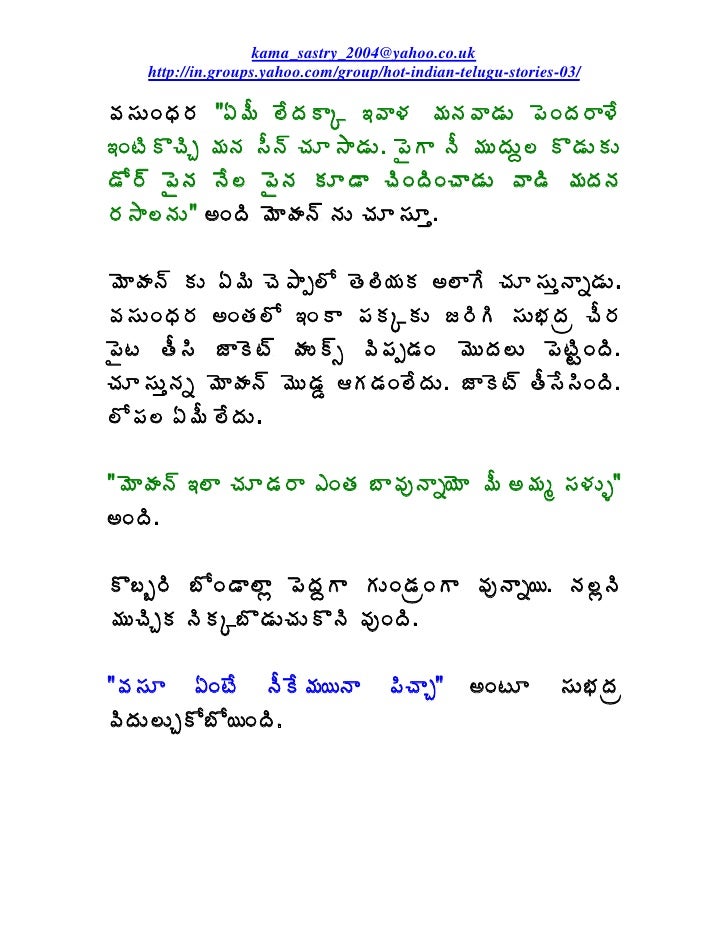 kama_sastry_2004@yahoo.co.uk
http://in.groups.yahoo.com/group/hot-indian-telugu-stories-03/
వసుంధర "ఏమీ లేదకాా్క ఇవాళ మనవాడు పెందరాళే
ఇంటికొచ్చి మన సీన్ చూసాడు. పైగా నీ ముద్దుల కొడుకు
డోర్ పైన నేల పైన కూడా చిందించాడు వాడి మదన
రసాలను" అంది మోహన్ ను చూస్తూ.
మోహన్ కు ఏమి చెప్పాలో తెలియక అలాగే చూస్తున్నాడు.
వసుంధర అంతలో ఇంకా పక్కకు జరిగి సుభద్ర చీర
పైట తీసి జాకెట్ హుక్స్ విప్పడం మొదలు పెట్టింది.
చూస్తున్న మోహన్ మొడ్డ ఆగడంలేదు. జాకెట్ తీసేసింది.
లోపల ఏమీ లేదు.
"మోహన్ ఇలా చూడరా ఎంత బావున్నాయో మీ అమ్మ సళ్ళు"
అంది.
కొబ్బరి బోండాల్లా పెద్దగా గుండ్రంగా వున్నాయి. నల్లని
ముచ్చిక నిక్కబొడుచుకొని వుంది.
"వసూ ఏంటే నీకేమయినా పిచ్చా" అంటూ సుభద్ర
విదుల్చుకోబోయింది.